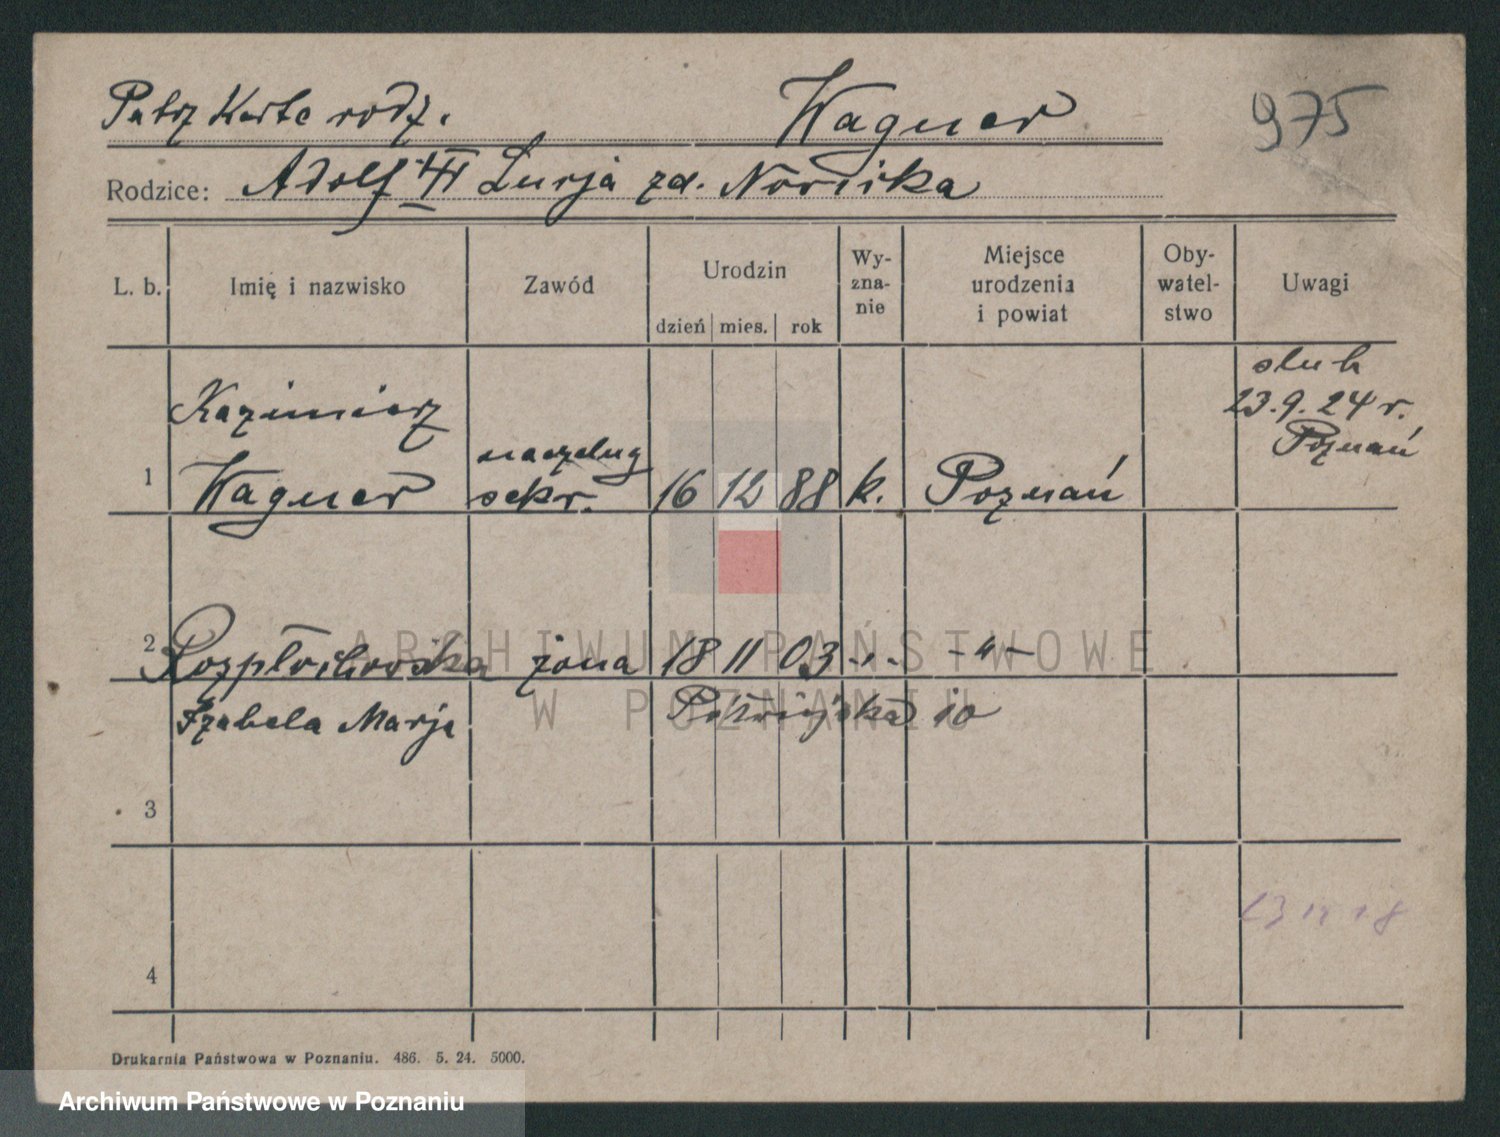 Patrz Karte rodz. Wagner 975
Rodzice: Adolf Lucja zd. Norska
L. b. Imię i nazwisko Zawód Urodzin dzień mies. rok Wy-zna-nie Miejsce urodzenia i powiat Oby-watel-stwo Uwagi
ślub
23.9.24 r.
Poznań
Kazimierz
1 Wagner naczelny sekr. 16 12 88 k. Poznań
2 Rozpłochowska żona 18 11 03 -"- -"-
Izabela Marja 10
3
4
Drukarnia Państwowa w Poznaniu. 486. 5. 24. 5000.
ARCHIWUM PAŃSTWOWE
W POZNANIU
Archiwum Państwowe w Poznaniu